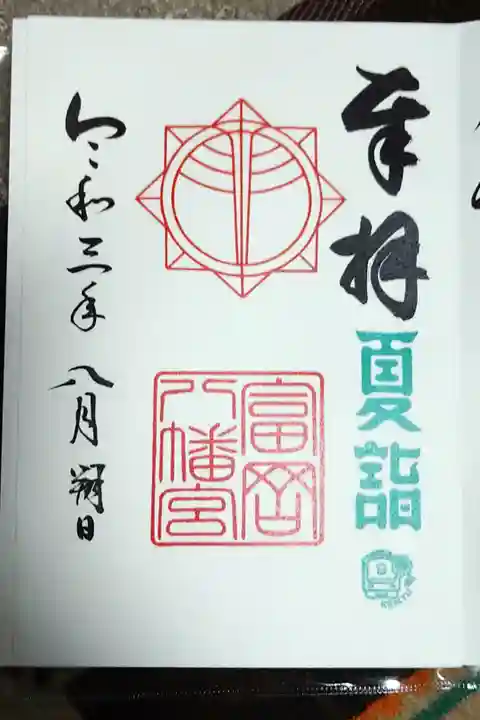 奉拝
夏詣
富岡
八幡宮
令和三年 八月 朔日